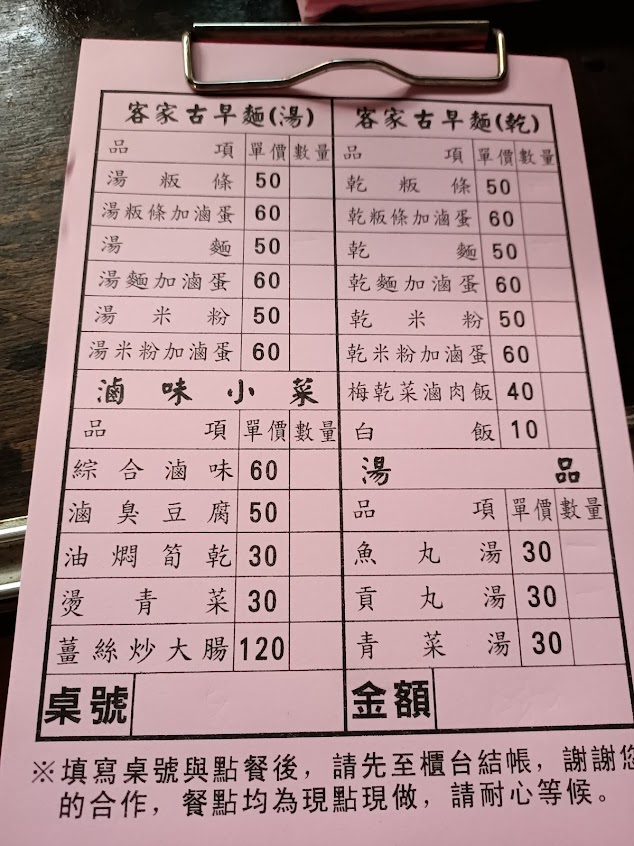 客家古早麵(湯)
品項 單價 數量
湯粄條 50
湯粄條加滷蛋 60
湯麵 50
湯麵加滷蛋 60
湯米粉 50
湯米粉加滷蛋 60
滷味小菜
品項 單價 數量
綜合滷味 60
滷臭豆腐 50
油燜筍乾 30
燙青菜 30
薑絲炒大腸 120
桌號
客家古早麵(乾)
品項 單價 數量
乾粄條 50
乾粄條加滷蛋 60
乾麵 50
乾麵加滷蛋 60
乾米粉 50
乾米粉加滷蛋 60
梅乾菜滷肉飯 40
白飯 10
湯品
品項 單價 數量
魚丸湯 30
貢丸湯 30
青菜湯 30
金額
※填寫桌號與點餐後，請先至櫃台結帳，謝謝您
的合作，餐點均為現點現做，請耐心等候。